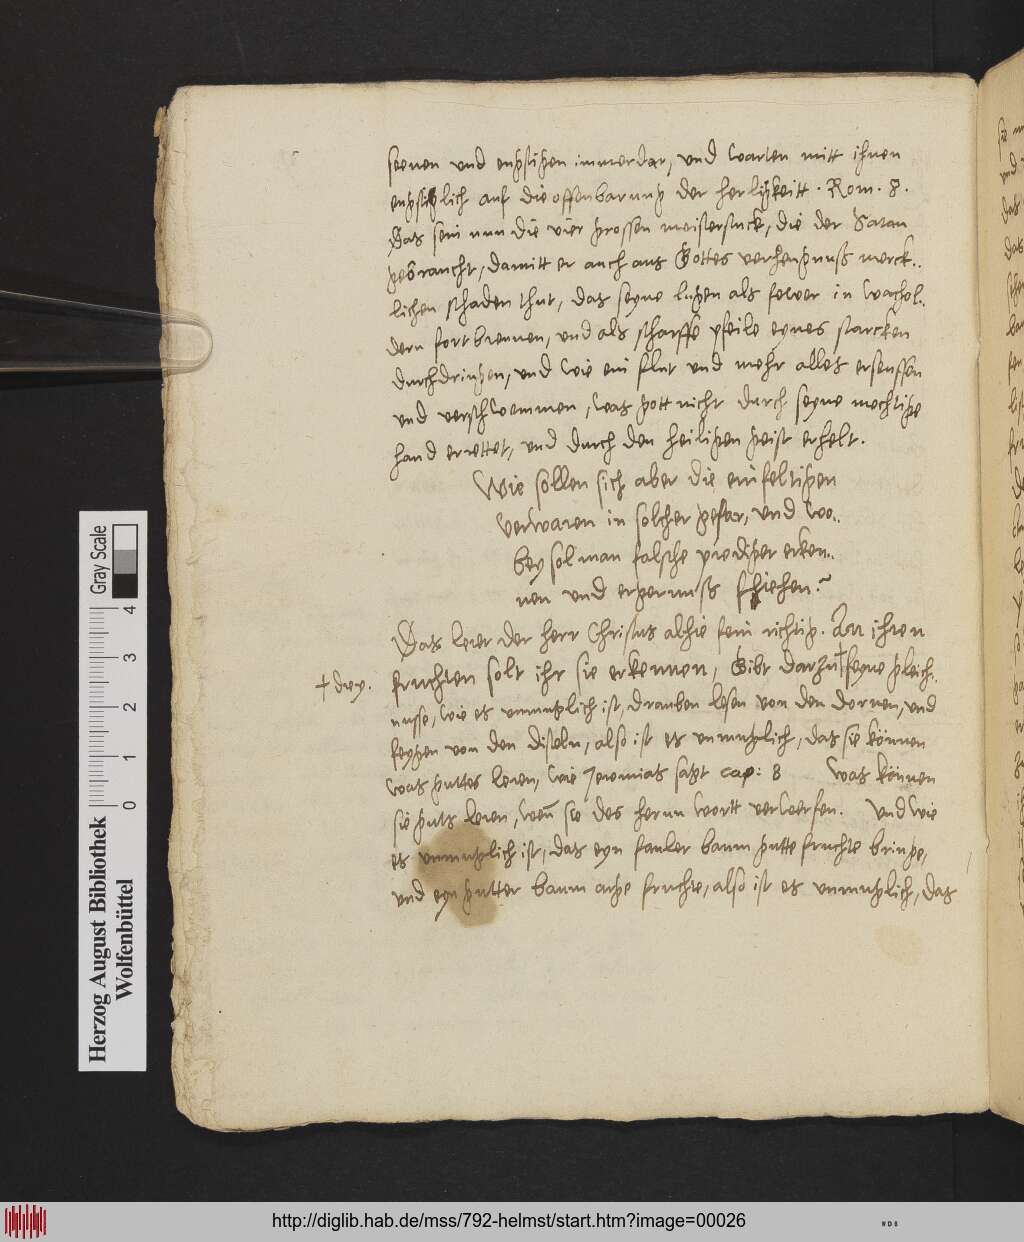 seenen und engstigen immerdar, und warten mitt ihnen
engstiglich auf die offenbarung der herligkeitt. Rom. 8.
Das sein nun die vier grossen meisterstuck, die der Satan
gebraucht, damitt er auch aus Gottes verhengnuß merck..
lichen schaden thut, das seyne lugen als fewer in wachol..
dern fortbrennen, und als scharffe pfeile eynes starcken
durchdringen, und wie ein flut und mehr alles erseuffen
und verschwemmen, was gott nicht durch seyne mechtige
hand errettet, und durch den heiligen geist erhelt.
Wie sollen sich aber die einfeltigen
verwaren in solcher gefar, und wo..
bey sol man falsche prediger erken..
nen und ergernuß fliehen?
Das leret der herr Christus alhie fein richtig. An ihren
fruchten solt ihr sie erkennen, Gibt darzu † seyne gleich..
† drey.
nusse, wie es unmuglich ist, drauben lesen von den dornen, und
feygen von den disteln, also ist es unmuglich, das sie können
was guttes leren, wie Jeremias sagt cap: 8 Was können
sie guts leren, wen sie des herrn wortt verwerfen. Und wie
es unmuglich ist, das eyn fauler baum gutte fruchte bringe,
und eyn gutter baum arge fruchte, also ist es unmuglich, das
Herzog August Bibliothek
Wolfenbüttel
Gray Scale
0 1 2 3 4
http://diglib.hab.de/mss/792-helmst/start.htm?image=00026